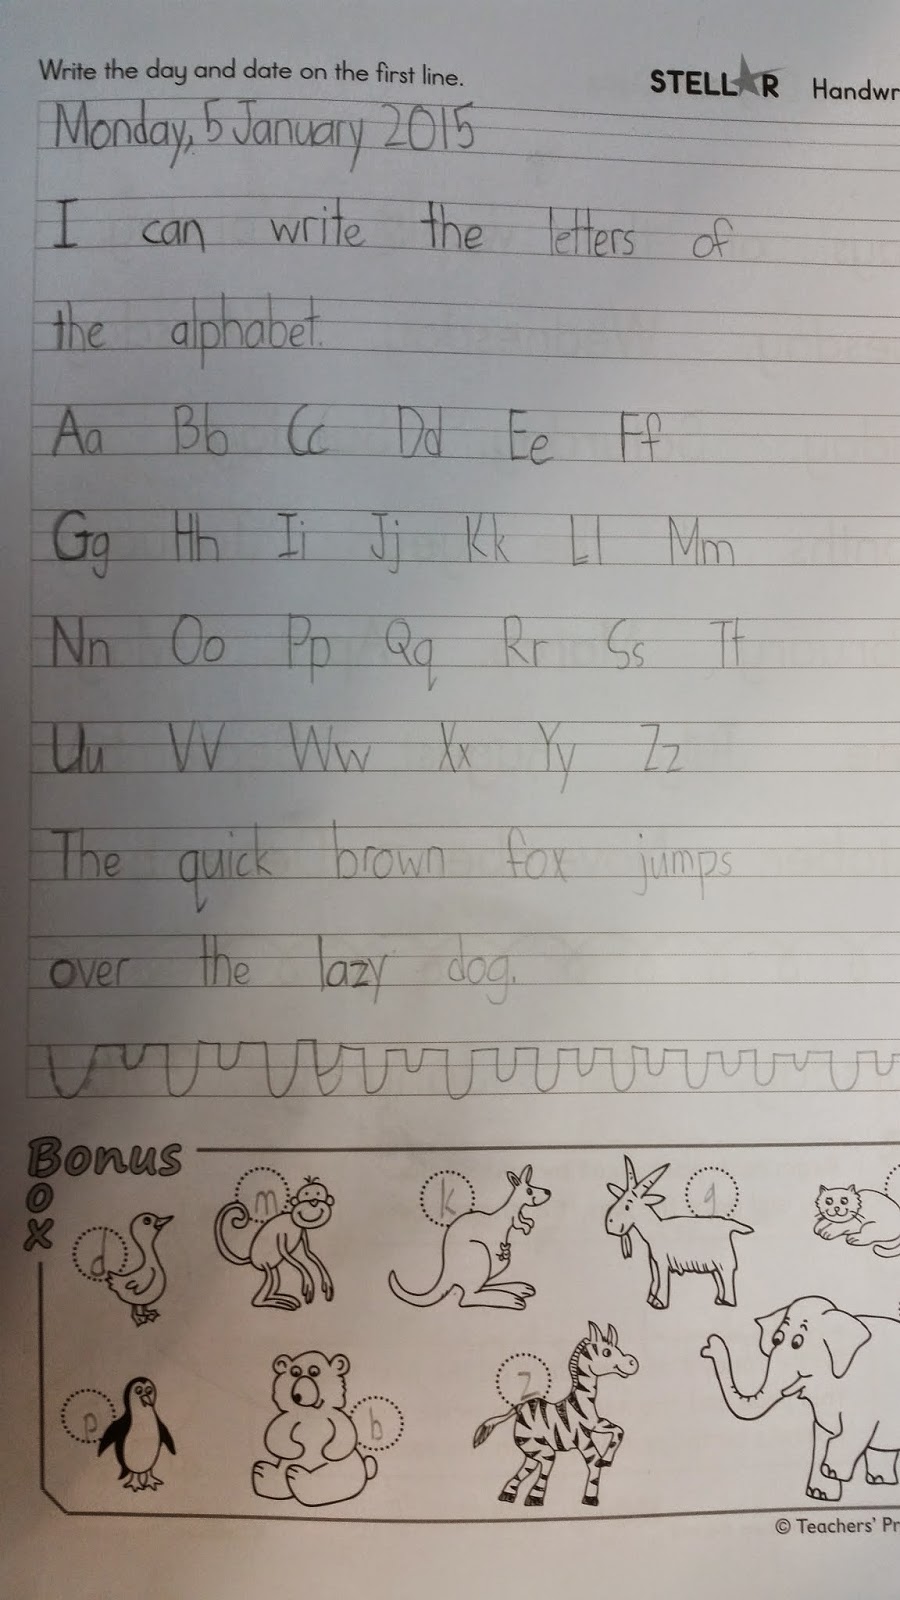 Write the day and date on the first line.
STELLAR Handwr
Monday, 5 January 2015
I can write the letters of
the alphabet.
Aa Bb Cc Dd Ee Ff
Gg Hh Ii Jj Kk Ll Mm
Nn Oo Pp Qq Rr Ss Tt
Uu Vv Ww Xx Yy Zz
The quick brown fox jumps
over the lazy dog.
Bonus
Box
d m k g
p b z
© Teachers' Pr